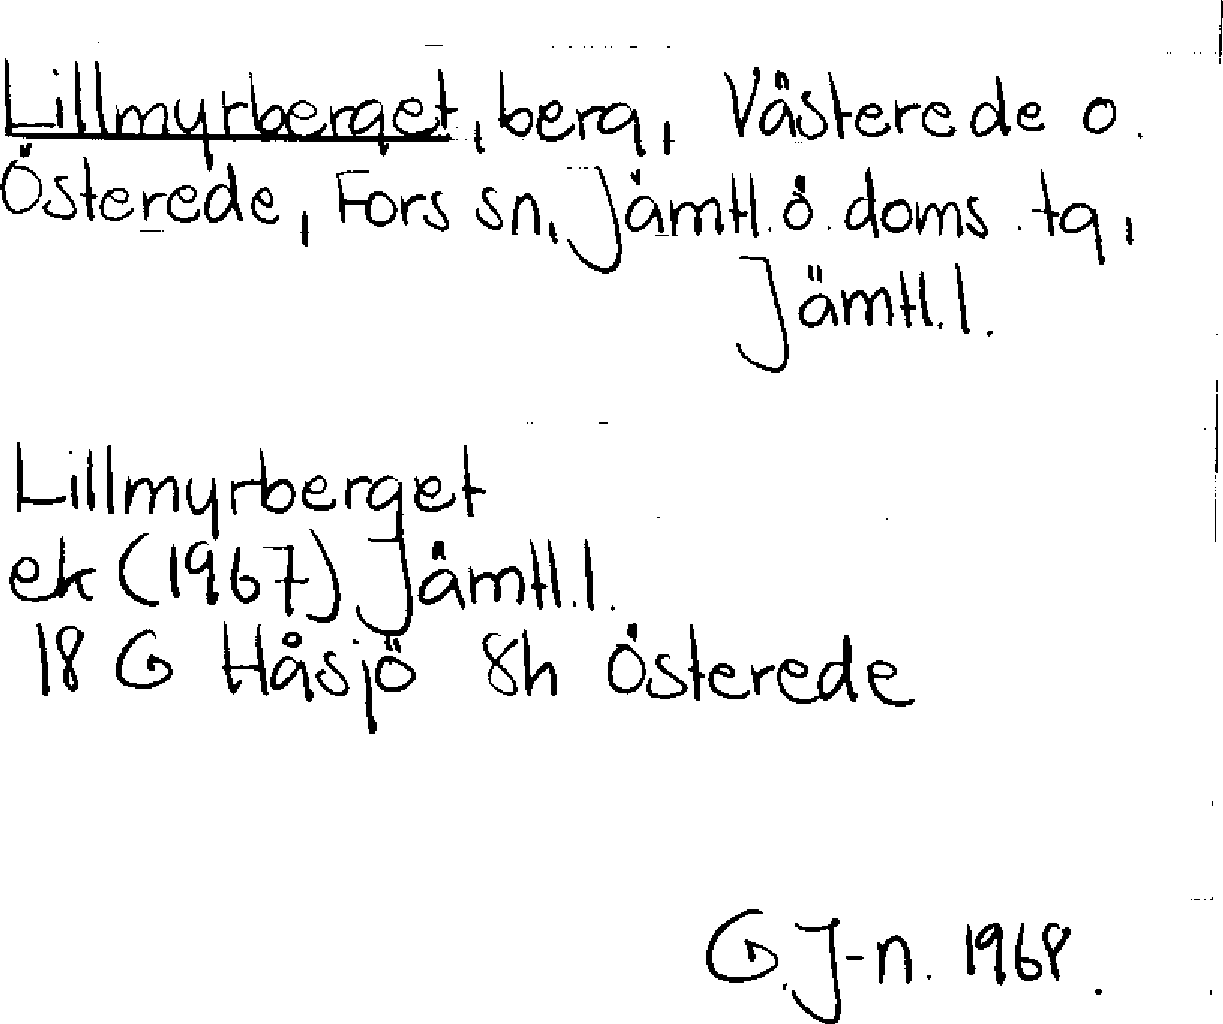 Lillmyrberget, berg, Västerede o.
Österede, Fors sn, Jämtl. ö. doms. tg,
Jämtl. l.
Lillmyrberget
ek (1967) Jämtl. l.
18 G Håsjö 8h Österede
G. J-n. 1968.